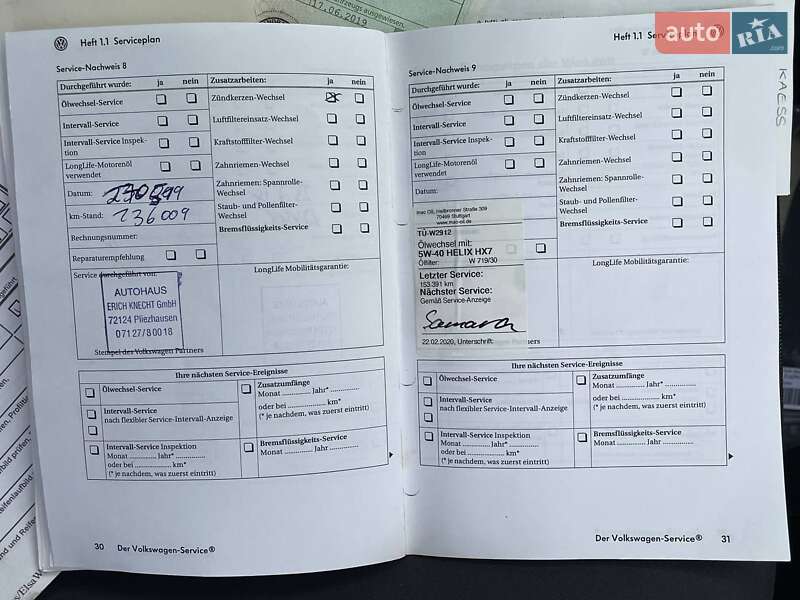 fahrzeugs ausgewiesen.
17.06.2019
auto RIA .com
KAESS
Heft 1.1 Serviceplan
Service-Nachweis 8
Durchgeführt wurde: ja nein Zusatzarbeiten: ja nein
Ölwechsel-Service Zündkerzen-Wechsel
Intervall-Service Luftfiltereinsatz-Wechsel
Intervall-Service Inspek-
tion Kraftstofffilter-Wechsel
LongLife-Motorenöl
verwendet Zahnriemen-Wechsel
Datum: Zahnriemen: Spannrolle-
Wechsel
km-Stand: 236009 Staub- und Pollenfilter-
Wechsel
Rechnungsnummer: Bremsflüssigkeits-Service
Reparaturempfehlung
Service durchgeführt von: LongLife Mobilitätsgarantie:
AUTOHAUS
ERICH KNECHT GmbH
72124 Pliezhausen
07127/80018
Stempel des Volkswagen Partners
Ihre nächsten Service-Ereignisse
Ölwechsel-Service Zusatzumfänge
Monat ............ Jahr* ............
Intervall-Service
nach flexibler Service-Intervall-Anzeige oder bei ............ km*
(* je nachdem, was zuerst eintritt)
Intervall-Service Inspektion
Monat ............ Jahr* ............
oder bei ............ km*
(* je nachdem, was zuerst eintritt)
Bremsflüssigkeits-Service
Monat ............ Jahr ............
30 Der Volkswagen-Service®
Heft 1.1 Serviceplan
Service-Nachweis 9
Durchgeführt wurde: ja nein Zusatzarbeiten: ja nein
Ölwechsel-Service Zündkerzen-Wechsel
Intervall-Service Luftfiltereinsatz-Wechsel
Intervall-Service Inspek-
tion Kraftstofffilter-Wechsel
LongLife-Motorenöl
verwendet Zahnriemen-Wechsel
Datum: Zahnriemen: Spannrolle-
Wechsel
Staub- und Pollenfilter-
Wechsel
Bremsflüssigkeits-Service
mac Oil, Heilbronner Straße 309
70469 Stuttgart
www.mac-oil.de
TÜ-W2912
Ölwechsel mit:
5W-40 HELIX HX7
Ölfilter: W 719/30
Letzter Service:
153.391 km
Nächster Service:
Gemäß Service-Anzeige
22.02.2020, Unterschrift:
LongLife Mobilitätsgarantie:
Partners
Ihre nächsten Service-Ereignisse
Ölwechsel-Service Zusatzumfänge
Monat ............ Jahr* ............
Intervall-Service
nach flexibler Service-Intervall-Anzeige oder bei ............ km*
(* je nachdem, was zuerst eintritt)
Intervall-Service Inspektion
Monat ............ Jahr* ............
oder bei ............ km*
(* je nachdem, was zuerst eintritt)
Bremsflüssigkeits-Service
Monat ............ Jahr ............
Der Volkswagen-Service® 31